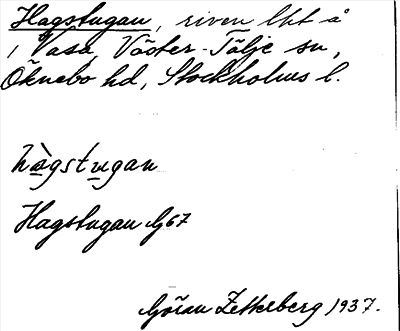 Hagstugan, riven lht å
i Vasa, Väster-Tälje sn,
Öknebo hd, Stockholms l.
hàgstugan
Hagstugan G67
Göran Zetterberg 1937.